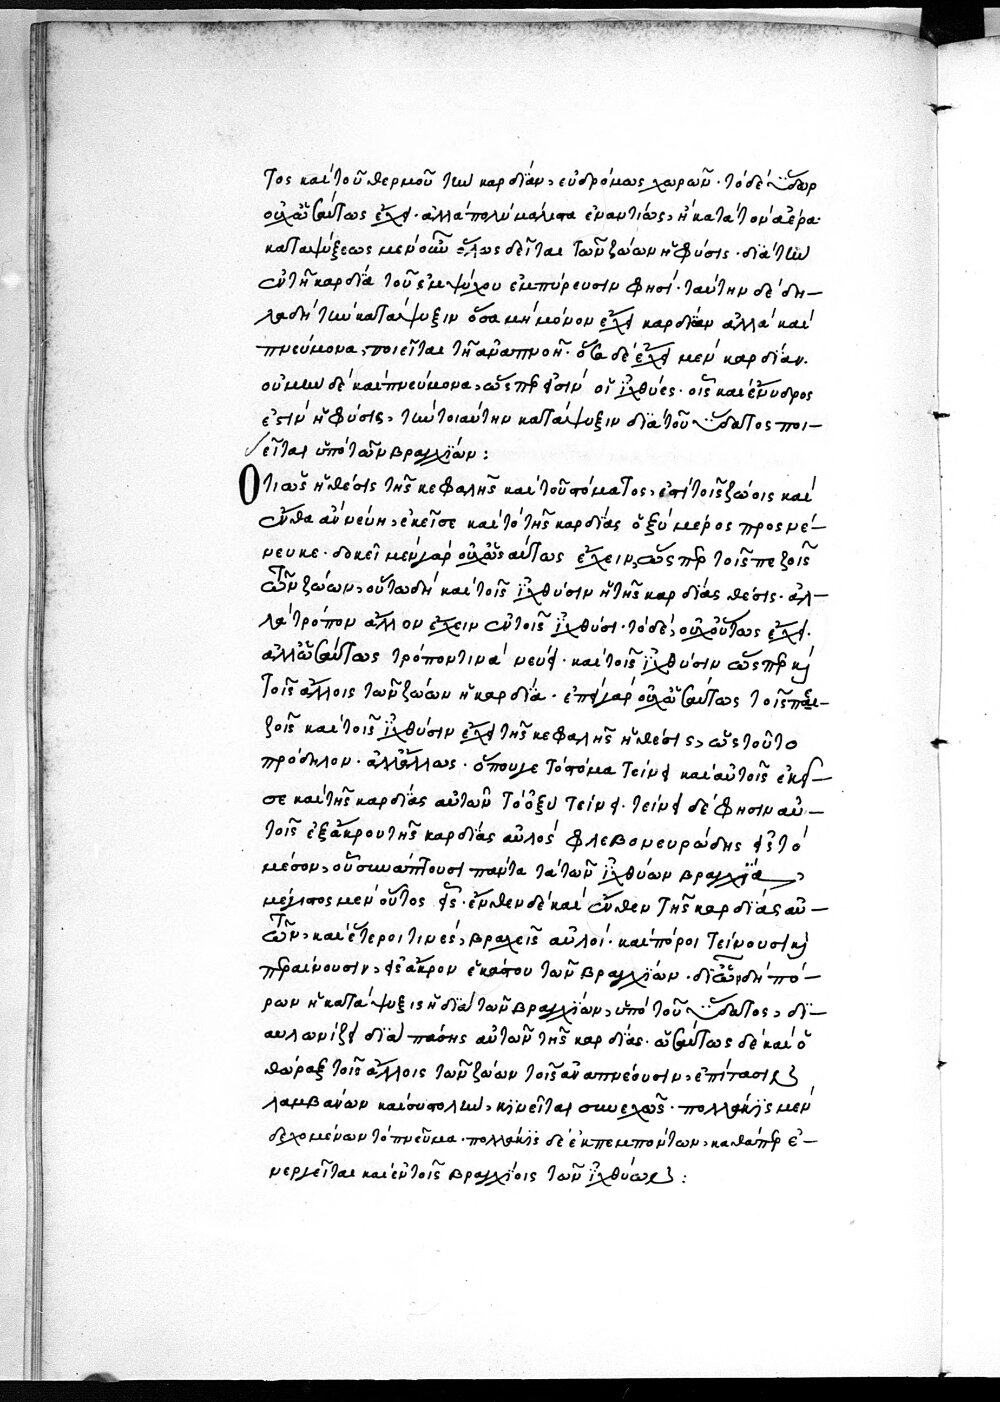 τος καὶ τοῦ θερμοῦ τὴν καρδίαν, εὐδρόμως χωρῶν· τὸ δὲ ὕδωρ
οὐχ ὡσαύτως ἔχει· ἀλλὰ πολὺ μάλιστα ἐναντίως, ἢ κατὰ τὸν ἀέρα·
καταψύξεως μὲν οὖν ὅλως δεῖται τῶν ζώων ἡ φύσις· διὰ τὴν
ἐν τῇ καρδίᾳ τοῦ ἐμψύχου ἐμπύρευσιν φησί· ταύτην δὲ δη-
λαδὴ τὴν κατάψυξιν ὅσα μὴ μόνον ἔχει καρδίαν ἀλλὰ καὶ
πνεύμονα, ποιεῖται τῇ ἀναπνοῇ· ὅσα δὲ ἔχει μὲν καρδίαν·
οὐ μὴν δὲ καὶ πνεύμονα, ὥσπερ εἰσὶν οἱ ἰχθύες· οἷς καὶ ἔνυδρος
ἐστὶν ἡ φύσις, τὴν τοιαύτην κατάψυξιν διὰ τοῦ ὕδατος ποι-
εῖται ὑπὸ τῶν βραγχίων:
Ὅτι ὡς ἡ θέσις τῆς κεφαλῆς καὶ τοῦ στόματος, ἐπὶ τοῖς ζώοις καὶ
ἔνθα ἂν νεύῃ, ἐκεῖσε καὶ τὸ τῆς καρδίας ὀξὺ μέρος προσνέ-
νευκε· δοκεῖ μὲν γὰρ οὐχ ὡσαύτως ἔχειν, ὥσπερ τοῖς πεζοῖς
τῶν ζώων, οὕτω δὴ καὶ τοῖς ἰχθύσιν ἡ τῆς καρδίας θέσις· ἀλ-
λὰ τρόπον ἄλλον ἔχειν ἐν τοῖς ἰχθύσι· τὸ δὲ, οὐχ οὕτως ἔχει·
ἀλλ' ὡσαύτως τρόπον τινὰ νεύει· καὶ τοῖς ἰχθύσιν ὥσπερ κὶ
τοῖς ἄλλοις τῶν ζώων ἡ καρδία· ἐπεὶ γὰρ οὐχ ὡσαύτως τοῖς πε-
ζοῖς καὶ τοῖς ἰχθύσιν ἔχει τῆς κεφαλῆς ἡ θέσις, ὡς τοῦτο
πρόδηλον· ἀλλ' ἄλλως· ὅπου γε τὸ στόμα τείνει καὶ αὐτοῖς ἐκεῖ-
σε καὶ τῆς καρδίας αὐτῶν τὸ ὀξὺ τείνει· τείνει δὲ φησιν αὐ-
τοῖς ἐξ ἄκρου τῆς καρδίας αὐλὸς φλεβονευρώδης εἰς τὸ
μέσον, οὗ συνάπτουσι πάντα τὰ τῶν ἰχθύων βραγχία,
μέγιστος μὲν οὗτος εἷς· ἔνθεν δὲ καὶ ἔνθεν τῆς καρδίας αὐ-
τῶν, καὶ ἕτεροι τινὲς, βραχεῖς αὐλοί· καὶ πόροι τείνουσι κὶ
περαίνουσιν, εἰς ἄκρον ἑκάστου τῶν βραγχίων· δι' ὧν δὴ πό-
ρων ἡ κατάψυξις ἡ διὰ τῶν βραγχίων, ὑπὸ τοῦ ὕδατος, δι-
αυλωνίζει διὰ πάσης αὐτῶν τῆς καρδίας· ὡσαύτως δὲ καὶ ὁ
θώραξ τοῖς ἄλλοις τῶν ζώων τοῖς ἀναπνέουσιν, ἐπίτασιν
λαμβάνων καὶ συστολὴν, κινεῖται συνεχῶς· πολλάκις μὲν
δεχομένων τὸ πνεῦμα· πολλάκις δὲ ἐκπεμπόντων, καθάπερ ἐ-
νεργεῖται καὶ ἐν τοῖς βραγχίοις τῶν ἰχθύων: